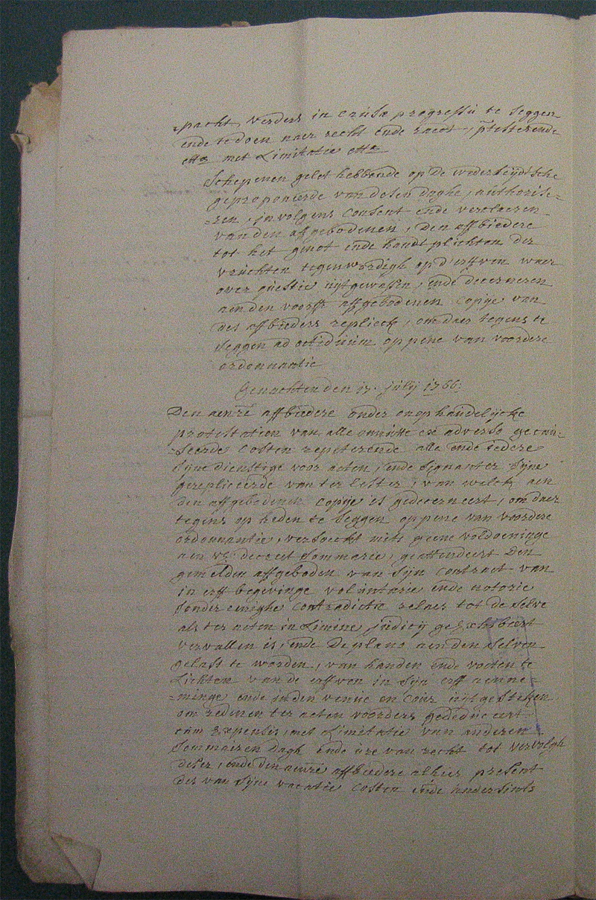 pacht, verders in causa progressu te seggen
ende te doen naer recht ende raedt, protesterende
etta met Limitatie etta
Schepenen gelet hebbende op de wederseydtsche
geproponeerde van desen daghe, authorise-
ren, in volgens consent ende verclaeren
van den affgebodenen, den affbiedere
tot het genot ende handtplichten der
vruchten tegenwordigh op d'erffven waer
over questie uytgewassen, ende decerneren
aen den voorss affgebodenen copye van
des affbieders replieck, om daer tegens te
seggen ad octiduum op pene van voordere
ordonnantie
Genachten den 17 july 1766:
Den aenre affbiedere onder onophoudelijcke
protestatien van alle omnisse ex adverso gecau-
seerde costen repeterende alle ende iedere
syne dienstige voor acten, ende signanter syne
gerepliceerde van ter lester, van welck aen
den affgebodenen copye is gedecerneert, om daer
tegens op heden te seggen op pene van voordere
ordonnantie, versoeckt mits geene voldoeninge
aen decreet Commerce, geattendeert den
gemelden affgeboden van syn contract van
in erff begevinge voluntarie ende notorie
sonder eenighe contradictie relaes tot de selve
als ter acten in Limine judicij geexhibeert
vervallen is, ende de plano aen den selven
gelast te worden, van handen ende voeten te
lichten van de erffven in syn erff aenne-
minge ende in den venue en cour uytgesteken
om redenen ter acten voorders gededuceert
cum expensis, met Limitatie van anderen
Sommieren dagh ende ure van recht tot vervolgh
deser, ende den aenre affbiedere alhier present
des van syne vacatie costen ende andersints